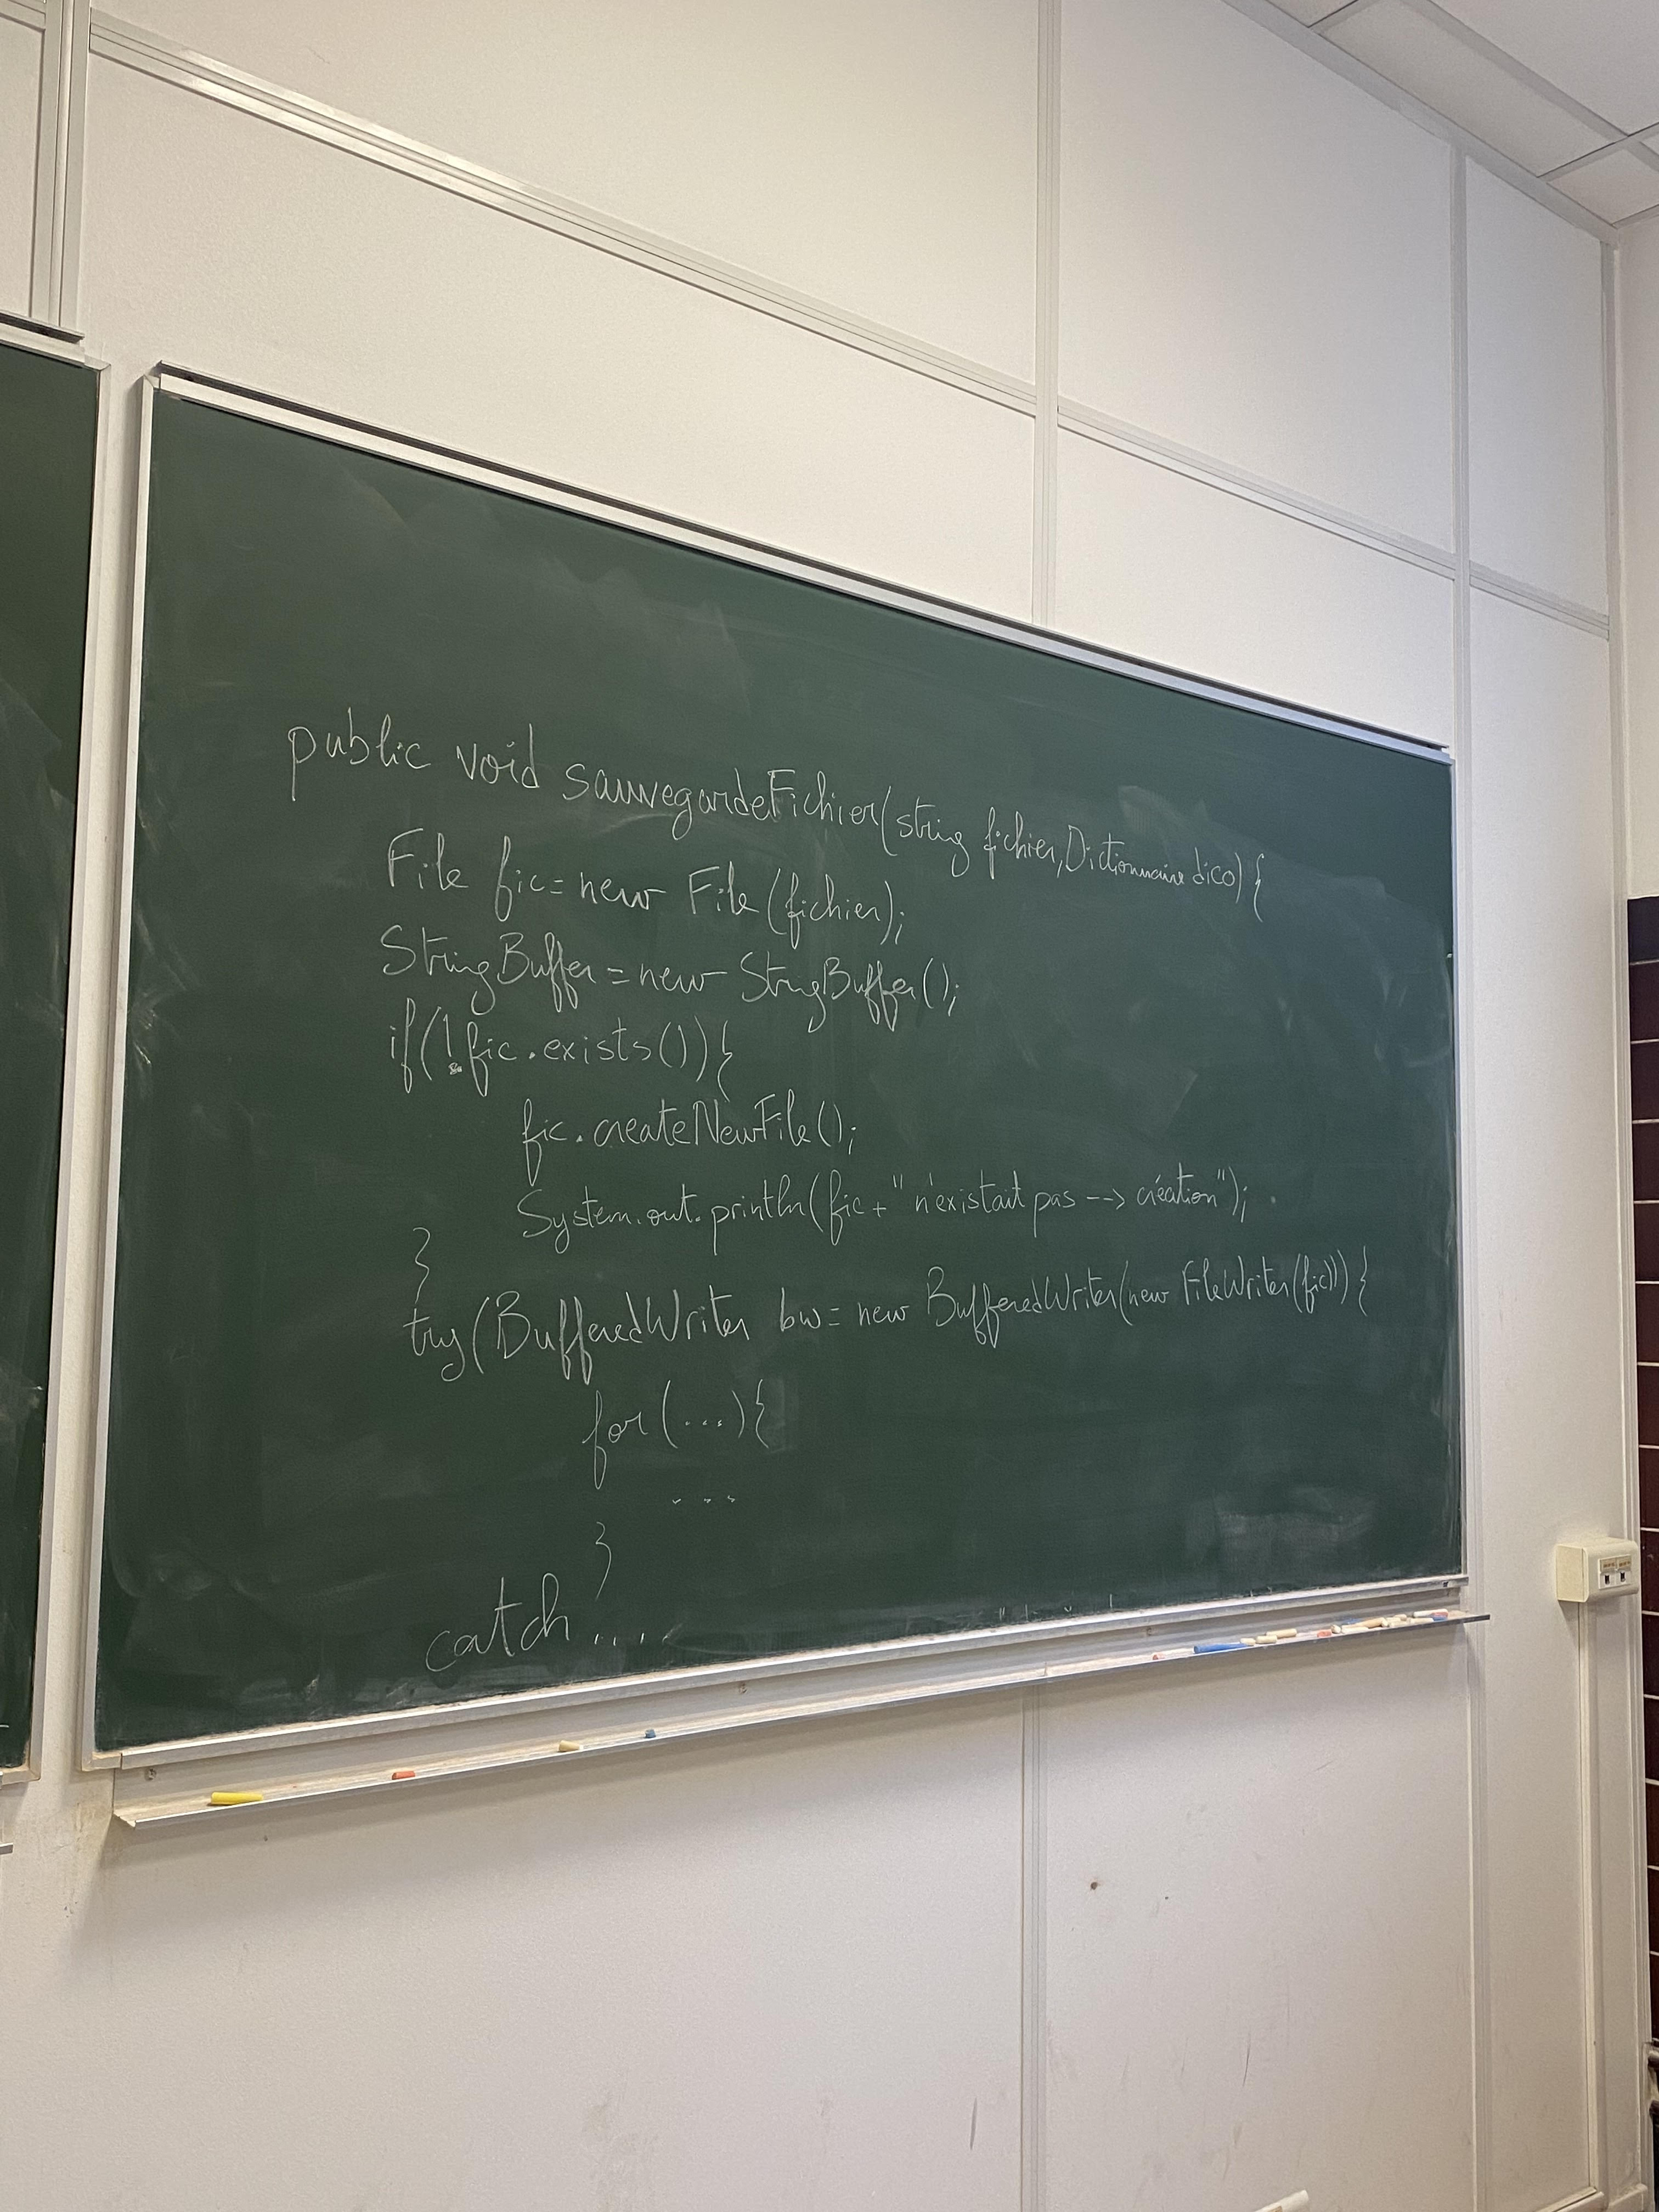 public void sauvegardeFichier(string fichier, Dictionnaire dico) {
File fic = new File (fichier);
StringBuffer = new StringBuffer();
if(!fic.exists()){
fic.createNewFile();
System.out.println(fic + " n'existait pas --> création");
}
try(BufferedWriter bw = new BufferedWriter(new FileWriter(fic)) {
for (...){
...
}
catch ....